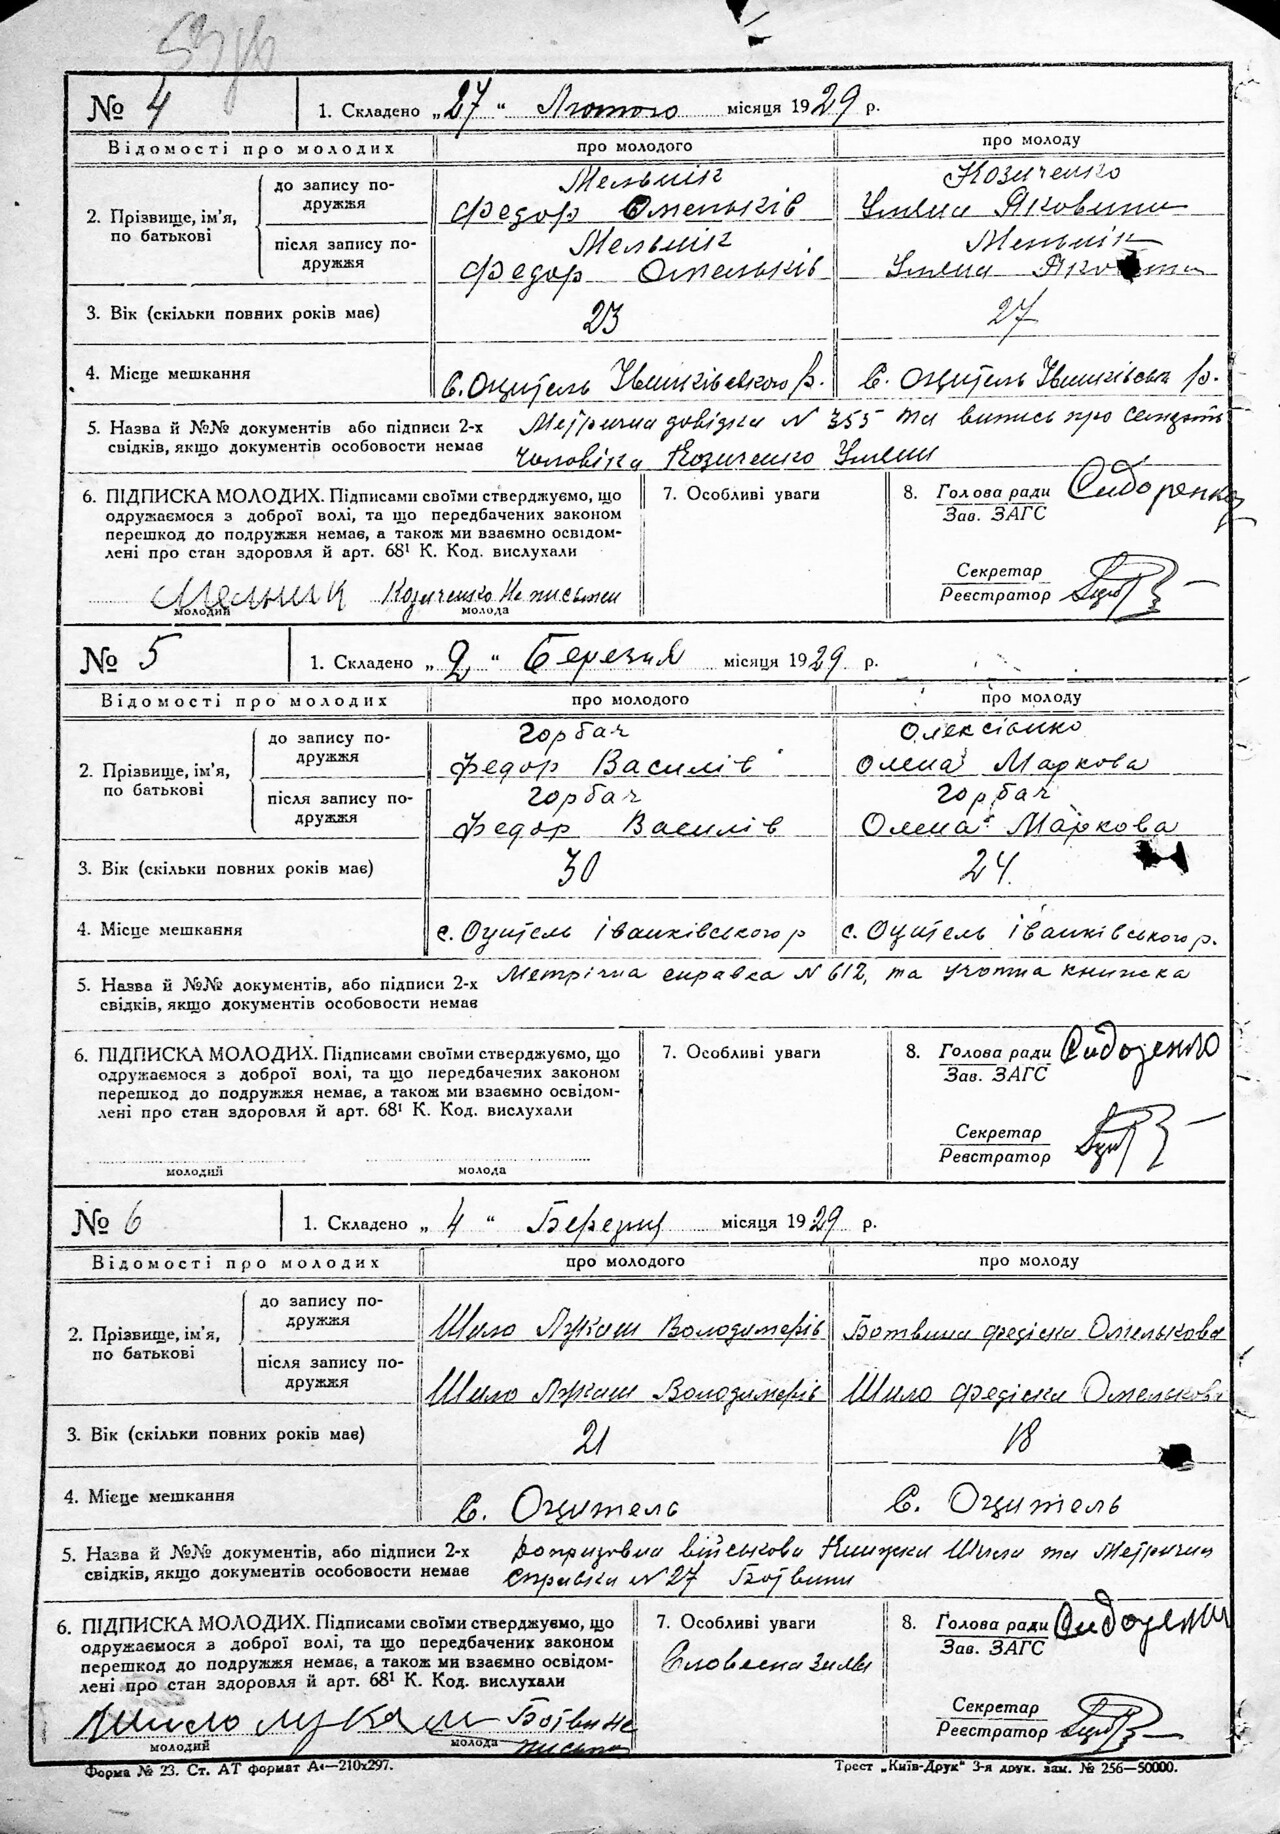 № 4 1. Складено „27“ Лютого місяця 1929 р.
Відомості про молодих про молодого про молоду
2. Прізвище, ім'я, по батькові
до запису подружжя
Мельнік Козиченко
Федор Омельків Уляна Яковина
після запису подружжя
Мельнік Мельнік
Федор Омельків Уляна
3. Вік (скільки повних років має) 23 27
4. Місце мешкання с. Оцитель Іванківського р. с. Оцитель Іванківськ р.
5. Назва й №№ документів або підписи 2-х Метрична довідка N 355 та випись про
свідків, якщо документів особовости немає чоловіка Козиченко Уляни
6. ПІДПИСКА МОЛОДИХ. Підписами своїми стверджуємо, що
одружаємося з доброї волі, та що передбачених законом
перешкод до подружжя немає, а також ми взаємно освідом-
лені про стан здоровля й арт. 68¹ К. Код. вислухали
Мельник Козиченко Не письмен
молодий молода
7. Особливі уваги
8. Голова ради Сидоренко
Зав. ЗАГС
Секретар
Реєстратор
№ 5 1. Складено „2“ Березня місяця 1929 р.
Відомості про молодих про молодого про молоду
2. Прізвище, ім'я, по батькові
до запису подружжя
Горбач Олексієнко
Федор Василів Олена Маркова
після запису подружжя
Горбач Горбач
Федор Василів Олена Маркова
3. Вік (скільки повних років має) 30 24
4. Місце мешкання с. Оцитель Іванківського р с. Оцитель Іванківського р.
5. Назва й №№ документів, або підписи 2-х Метрична справка N 612, та учотна книжка
свідків, якщо документів особовости немає
6. ПІДПИСКА МОЛОДИХ. Підписами своїми стверджуємо, що
одружаємося з доброї волі, та що передбачених законом
перешкод до подружжя немає, а також ми взаємно освідом-
лені про стан здоровля й арт. 68¹ К. Код. вислухали
молодий молода
7. Особливі уваги
8. Голова ради Сидоренко
Зав. ЗАГС
Секретар
Реєстратор
№ 6 1. Складено „4“ Березня місяця 1929 р.
Відомості про молодих про молодого про молоду
2. Прізвище, ім'я, по батькові
до запису подружжя
Шило Лукаш Володимерів Ботвина Федіска Омелькова
після запису подружжя
Шило Лукаш Володимерів Шило Федіска Омелькова
3. Вік (скільки повних років має) 21 18
4. Місце мешкання с. Оцитель с. Оцитель
5. Назва й №№ документів, або підписи 2-х Допризовна військова Книжка Шила та Метрична
свідків, якщо документів особовости немає Справка N 27 Ботвини
6. ПІДПИСКА МОЛОДИХ. Підписами своїми стверджуємо, що
одружаємося з доброї волі, та що передбачених законом
перешкод до подружжя немає, а також ми взаємно освідом-
лені про стан здоровля й арт. 68¹ К. Код. вислухали
Шило Лукаш Ботвина Не
молодий молода письмен
7. Особливі уваги
Словесна
8. Голова ради Сидоренко
Зав. ЗАГС
Секретар
Реєстратор
Форма № 23. Ст. АТ формат А4—210х297. Трест „Київ-Друк“ 3-я друк. зам. № 256—50000.